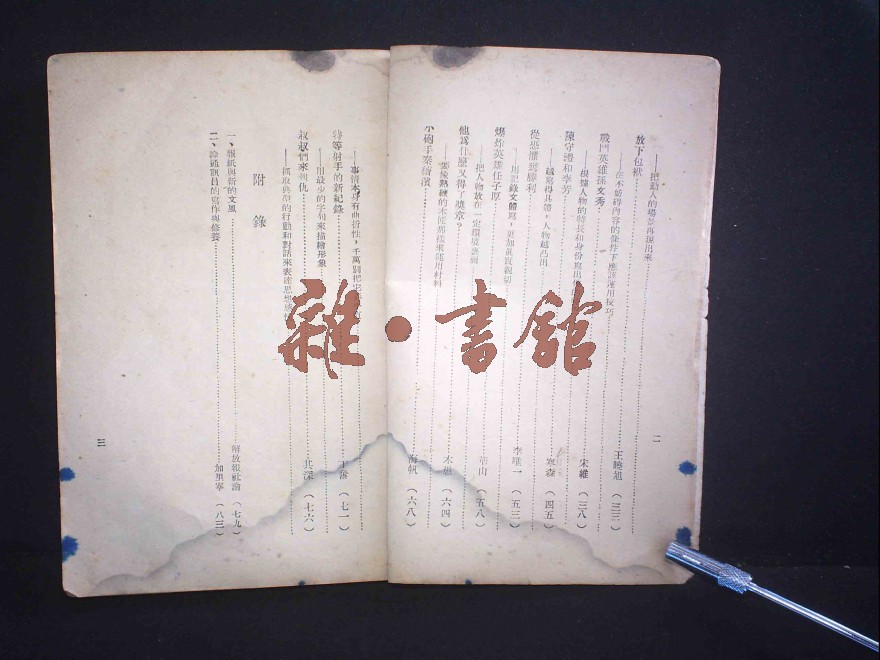 ——把動人的場景再現出來
放下包袱……王曉旭(三三)
——在不妨碍內容的條件下應該運用技巧
戰鬥英雄孫文秀
陳守禮和李芳……宋維(三八)
——根據人物的特長和身份寫出
從恐懼到勝利……寒森(四五)
——越寫得具體,人物越凸出
爆炸英雄任子厚……李維一(五三)
——用記錄文體寫,更加眞實親切
他爲什麼又得了獎章?……華山(五八)
——把人物放在一定環境裏
小砲手秦緒濱……木雄(六四)
——要像熟練的木匠那樣來運用材料
海帆(六八)
二
——事情本身有曲折性,千萬別把它
特等射手的新紀錄……丁奮(七一)
——用最少的字句來描繪形象
叔叔們來報仇……其深(七六)
——抓取典型的行動和對話來表達思想感
附錄
一、報紙與新的文風……解放報社論(七九)
二、論通訊員的寫作與修養……加里寧(八三)
三
雜·書館